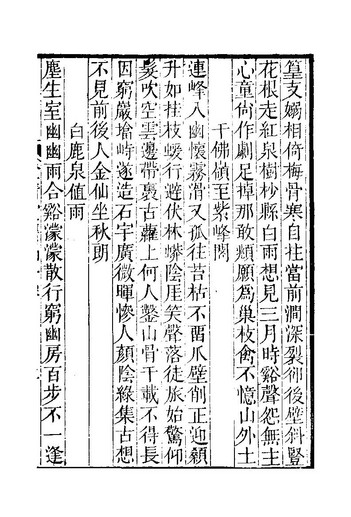 篁支嫋相倚梅骨寒自拄當前澗深裂卻後壁斜豎
花根走紅泉樹杪縣白雨想見三月時谿聲怨無主
心童尚作劇足掉那敢頫願為巢枝禽不憶山外土
千佛嶺至紫峰閣
連峰入幽懷霧滑又孤往苔枯不畱爪壁削正迎顙
升如挂枝蝯行避伏林蟒陰厓笑聲落徒旅始驚仰
炭吹空雲邊帶裹古蘿上何人鑿山骨千載不得長
因窮巖嵱峙遂造石宇廣微暉慘人顏陰綠集古想
不見前後人金仙坐秋朗
白鹿泉值雨
塵生室幽幽雨合谿濛濛散行窮幽房百步不一逢